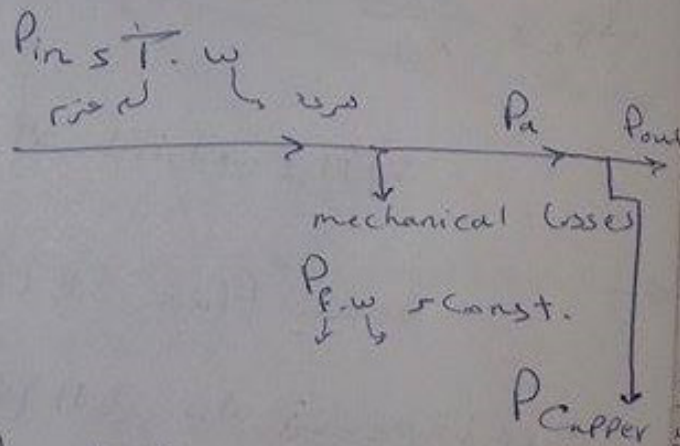 Pin = T . w
عزم سرعة
Pa Pout
mechanical losses
Pf.w = Const.
Pcupper